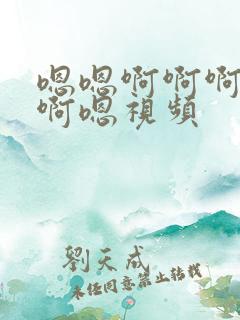 嗯嗯啊啊啊
啊嗯視頻
劉天成
未经同意禁止转载